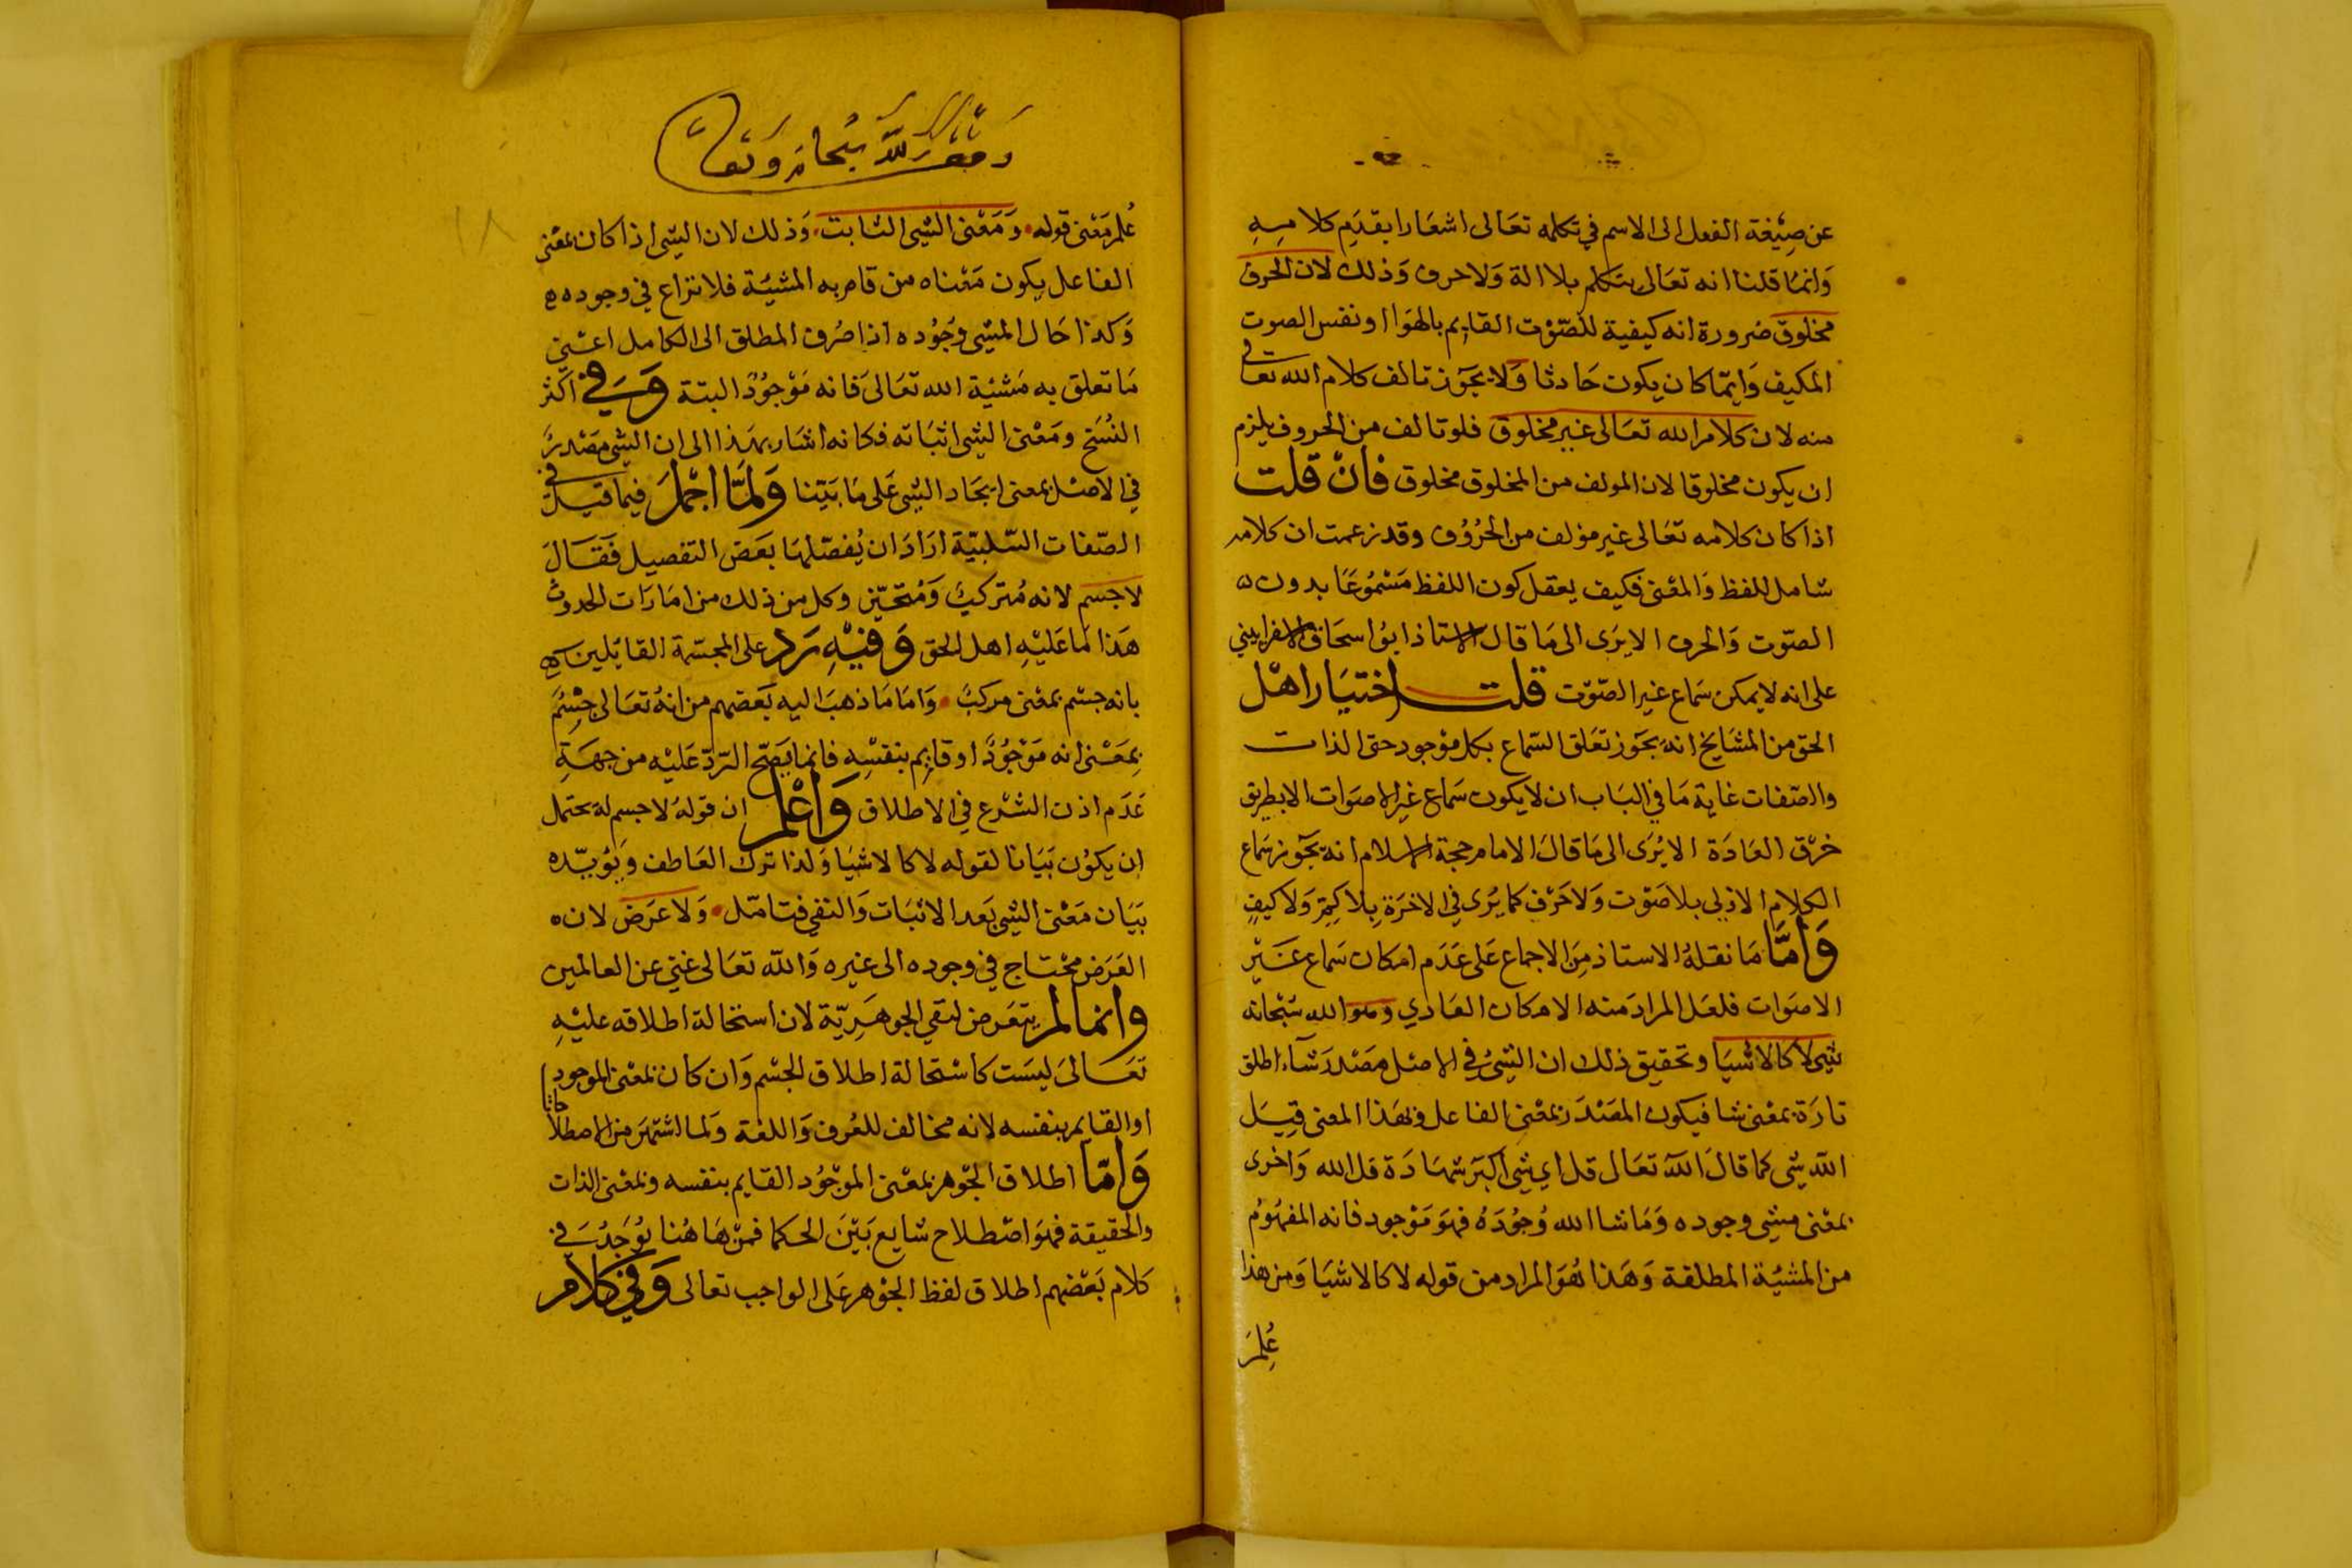 عن صيغة الفعل الى الاسم في تكلمه تعالى اشعارا بقديم كلامه
وانما قلنا انه تعالى يتكلم بلا الة ولا حرف وذلك لان الحرف
مخلوق ضرورة انه كيفية للصوت القايم بالهوا او نفس الصوت
المكيف وايما كان يكون حادثا ولا يجوز تالف كلام الله تعالى
منه لان كلام الله تعالى غير مخلوق فلو تالف من الحروف يلزم
ان يكون مخلوقا لان المولف من المخلوق مخلوق فان قلت
اذا كان كلامه تعالى غير مؤلف من الحروف وقد زعمت ان كلامه
شامل للفظ والمعنى فكيف يعقل كون اللفظ مسموعا بدون
الصوت والحرف الا يرى الى ما قال الاستاذ ابو اسحاق الاسفرايني
على انه لا يمكن سماع غير الصوت قلت اختيار اهل
الحق من المشايخ انه يجوز تعلق السماع بكل موجود حتى الذات
والصفات غاية ما في الباب ان لا يكون سماع غير الاصوات الا بطريق
خرق العادة الا يرى الى ما قال الامام حجة الاسلام انه يجوز سماع
الكلام الازلي بلا صوت ولا حرف كما يرى في الاخرة بلا كم ولا كيف
واما ما نقله الاستاذ من الاجماع على عدم امكان سماع غير
الاصوات فلعل المراد منه الامكان العادي وهو الله سبحانه
شي لا كالاشيا وتحقيق ذلك ان الشي في الاصل مصدر شاء اطلق
تارة بمعنى شا فيكون المصدر بمعنى الفاعل وبهذا المعنى قيل
الله شي كما قال الله تعالى قل اي شي اكبر شهادة قل الله واخرى
بمعنى مشي وجوده وما شا الله وجوده فهو موجود فانه المفهوم
من المشيئة المطلقة وهذا هو المراد من قوله لا كالاشيا ومن هذا
علم
علم معنى قوله ومعنى الشي الثابت وذلك لان الشي اذا كان بمعنى
الفاعل يكون معناه من قام به المشيئة فلا نزاع في وجوده
وكذا حال المشي وجوده اذا صرف المطلق الى الكامل اعني
ما تعلق به مشيئة الله تعالى فانه موجود البتة وفي اكثر
النسخ ومعنى الشي اثباته فكانه اشار بهذا الى ان الشي مصدر
في الاصل بمعنى ايجاد الشي على ما بينا ولما اجمل فيما قيل في
الصفات السلبية اراد ان يفصلها بعض التفصيل فقال
لا جسم لانه متركب ومتحيز وكل من ذلك من امارات الحدوث
هذا ما عليه اهل الحق وفيه رد على المجسمة القائلين
بانه جسم بمعنى مركب واما ما ذهب اليه بعضهم من انه تعالى جسم
بمعنى انه موجود او قايم بنفسه فانما يصح الرد عليه من جهة
عدم اذن الشرع في الاطلاق واعلم ان قوله لا جسم له يحتمل
ان يكون بيانا لقوله لا كالاشيا ولذا ترك العاطف ويؤيده
بيان معنى الشي بعد الاثبات والنفي فتامل ولا عرض لان
العرض محتاج في وجوده الى غيره والله تعالى غني عن العالمين
وانما لم يتعرض لنفي الجوهرية لان استحالة اطلاقه عليه
تعالى ليست كاستحالة اطلاق الجسم وان كان بمعنى الموجود
او القايم بنفسه لانه مخالف للعرف واللغة ولما اشتهر من الاصطلاحات
واما اطلاق الجوهر بمعنى الموجود القايم بنفسه وبمعنى الذات
والحقيقة فهو اصطلاح شايع بين الحكما فمن هاهنا يوجد في
كلام بعضهم اطلاق لفظ الجوهر على الواجب تعالى وفي كلام
١٨